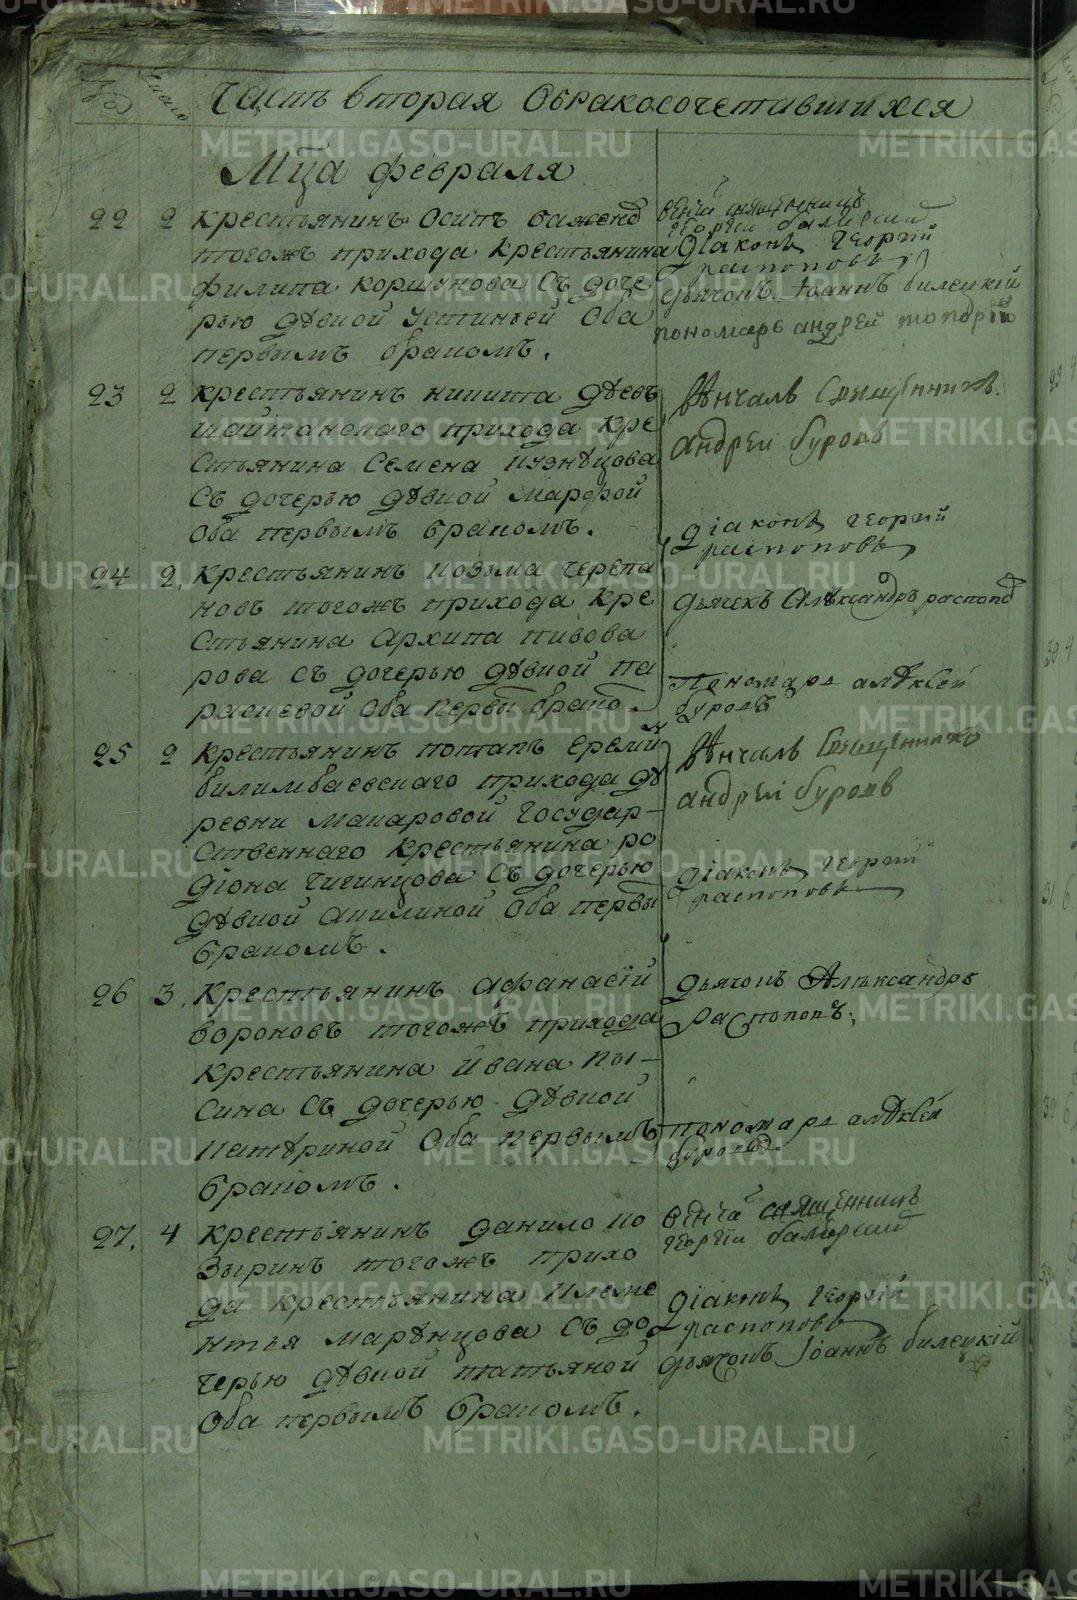 №
число
Часть вторая о бракосочетавшихся
Мца февраля
22 2 крестьянинъ Осипъ бажено
тогожъ прихода крестьянина
филипа коршунова съ доче
рью дѣвкой устиньей оба
первымъ бракомъ.
венча священникъ
георгiи
дiаконъ георгiй
распоповъ
дьячокъ Iоаннъ билецкiй
пономарь андрей топорко
23 2 крестьянинъ никита дѣевъ
шайтанского прихода кре
стьянина Семена кузнѣцова
съ дочерью дѣвкой марфой
оба первымъ бракомъ.
вѣнчалъ священникъ
андреи буровъ
дiаконъ георгiй
распоповъ
24 2. крестьянинъ козьма черепа
новъ тогожъ прихода кре
стьянина архипа пивова
рова съ дочерью дѣвкой па
раскевой оба первы брако.
дьячекъ Алѣксандръ распопо
Пономарь алѣксей
буровъ
25 2 крестьянинъ потапъ ереми
билимбаевскаго прихода де
ревни макаровой государ-
ственнаго крестьянина ро
дiона чигинцова съ дочерью
дѣвкой акилиной оба первы
бракомъ.
вѣнчалъ священникъ
андреi буровъ
дiаконъ георгiй
распоповъ
26 3. крестьянинъ афанасiй
вороновъ тогожъ прихода
крестьянина ивана пы-
сина съ дочерью дѣвкой
катѣриной оба первымъ
бракомъ.
дьячокъ Алѣксандръ
распоповъ,
пономарь алѣксей
буровъ
27. 4 крестьянинъ данило ко
зыринъ тогожъ прихо
да крестьянина клеме
нтья марѣнцова съ до
черью дѣвкой татьяной
оба первымъ бракомъ.
венча священникъ
георгiи
дiаконъ георгiй
распоповъ
дьячокъ Iоаннъ билецкiй
METRIKI.GASO-URAL.RU